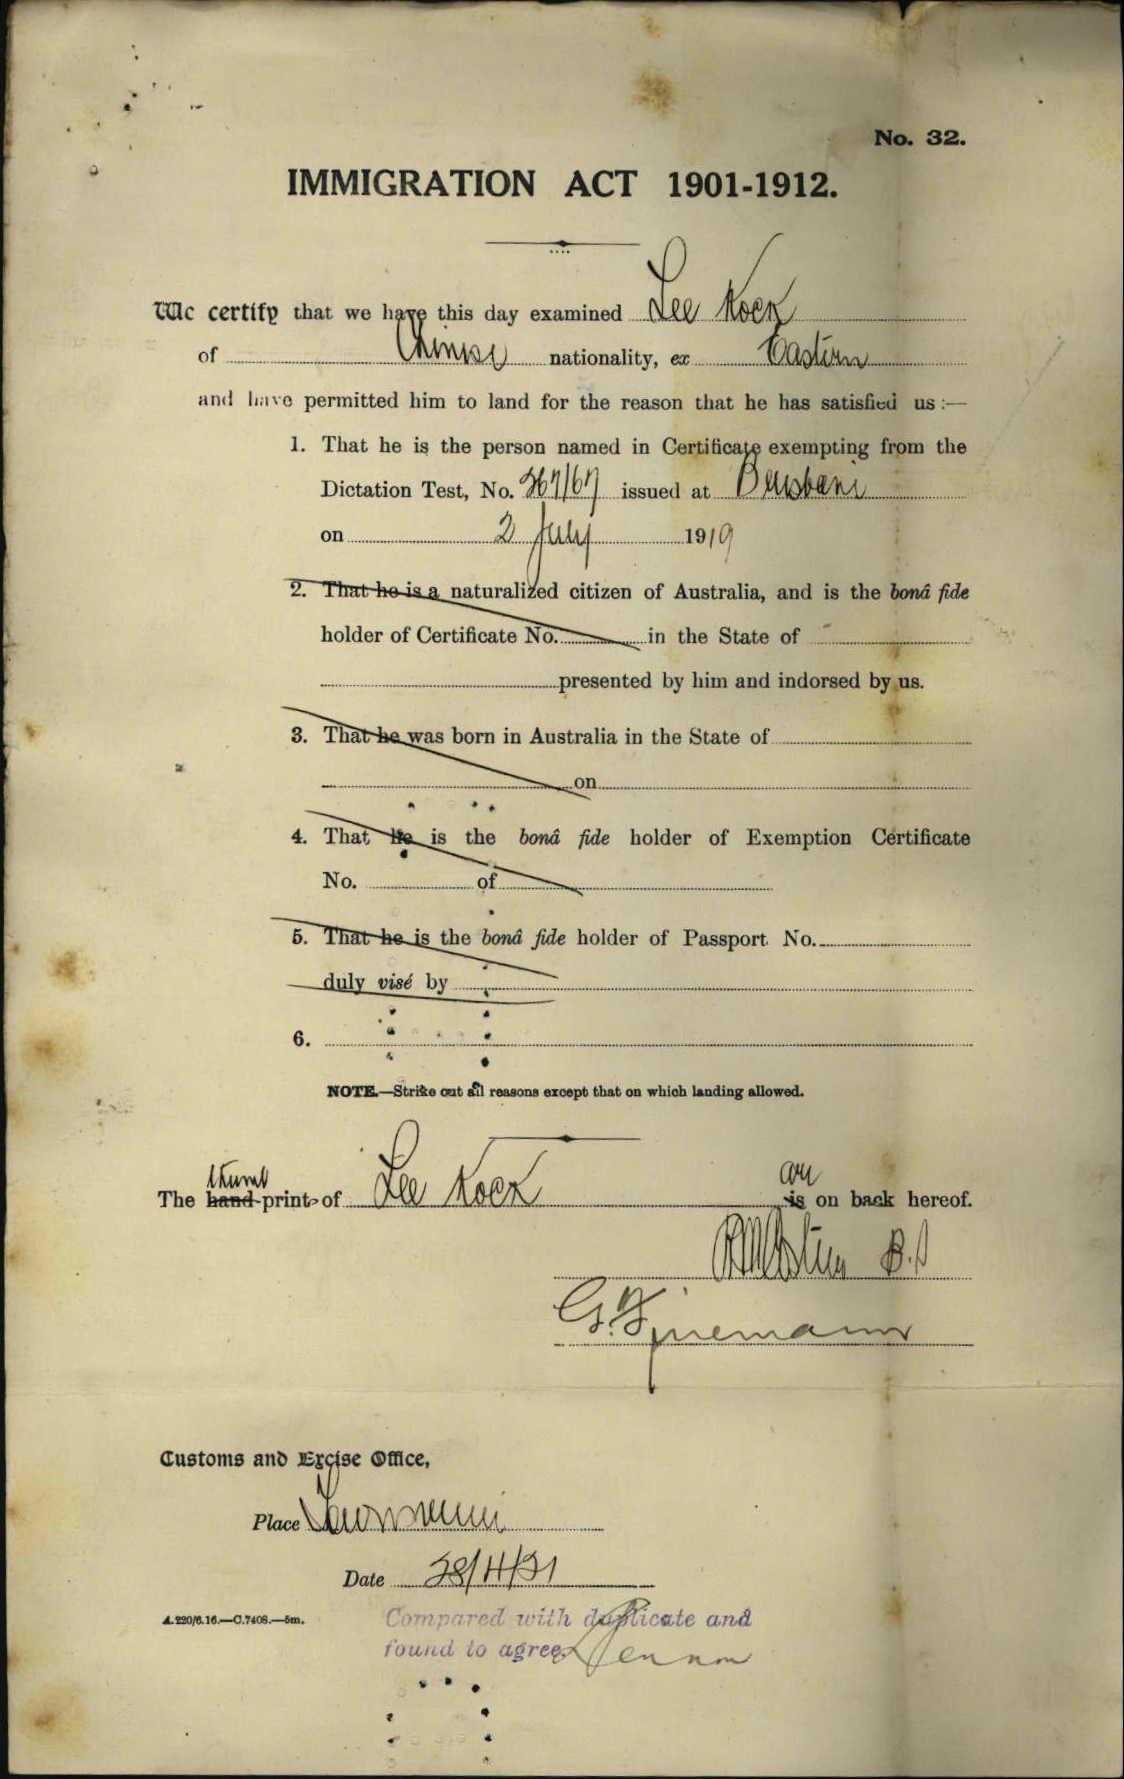 No. 32.
IMMIGRATION ACT 1901-1912.
We certify that we have this day examined Lee Kock
of Chinese nationality, ex Eastern
and have permitted him to land for the reason that he has satisfied us :—
1. That he is the person named in Certificate exempting from the
Dictation Test, No. 267/67 issued at Brisbane
on 2 July 1919
2. That he is a naturalized citizen of Australia, and is the bonâ fide
holder of Certificate No. in the State of
presented by him and indorsed by us.
3. That he was born in Australia in the State of
on
4. That he is the bonâ fide holder of Exemption Certificate
No. of
5. That he is the bonâ fide holder of Passport No.
duly visé by
6.
NOTE.—Strike out all reasons except that on which landing allowed.
thumb are
The hand-print of Lee Kock is on back hereof.
Customs and Excise Office,
Place
Date 28/4/21
A.220/6.16.—C.7408.—5m.
Compared with duplicate and
found to agree.